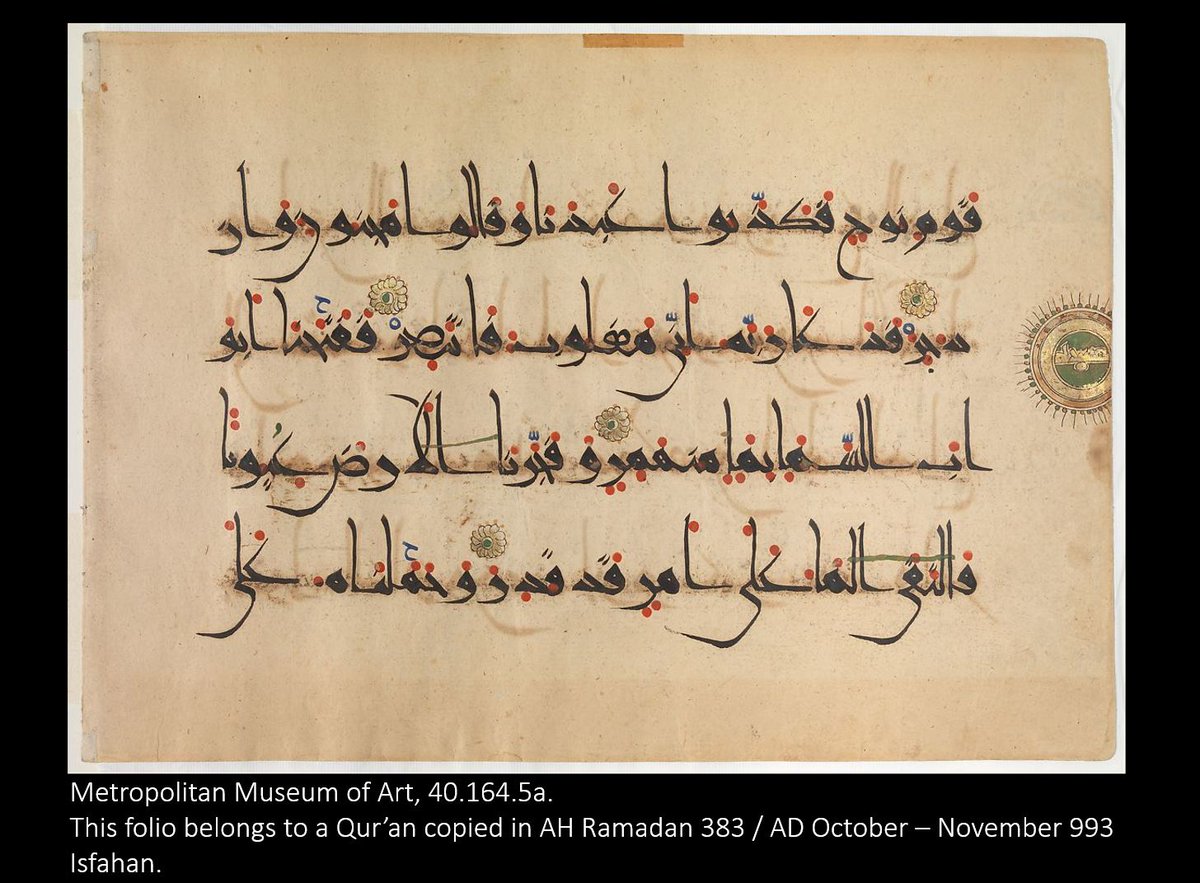 قوم نوح فكذّبوا عبدنا وقالوا مجنون واز
دجر فدعا ربّه انّي مغلوب فانتصر ففتحنا ابو
اب السّما بما منهمر وفجّرنا الارض عيونا
فالتقى الما على امر قد قدر وحملناه على
Metropolitan Museum of Art, 40.164.5a.
This folio belongs to a Qur’an copied in AH Ramadan 383 / AD October – November 993
Isfahan.